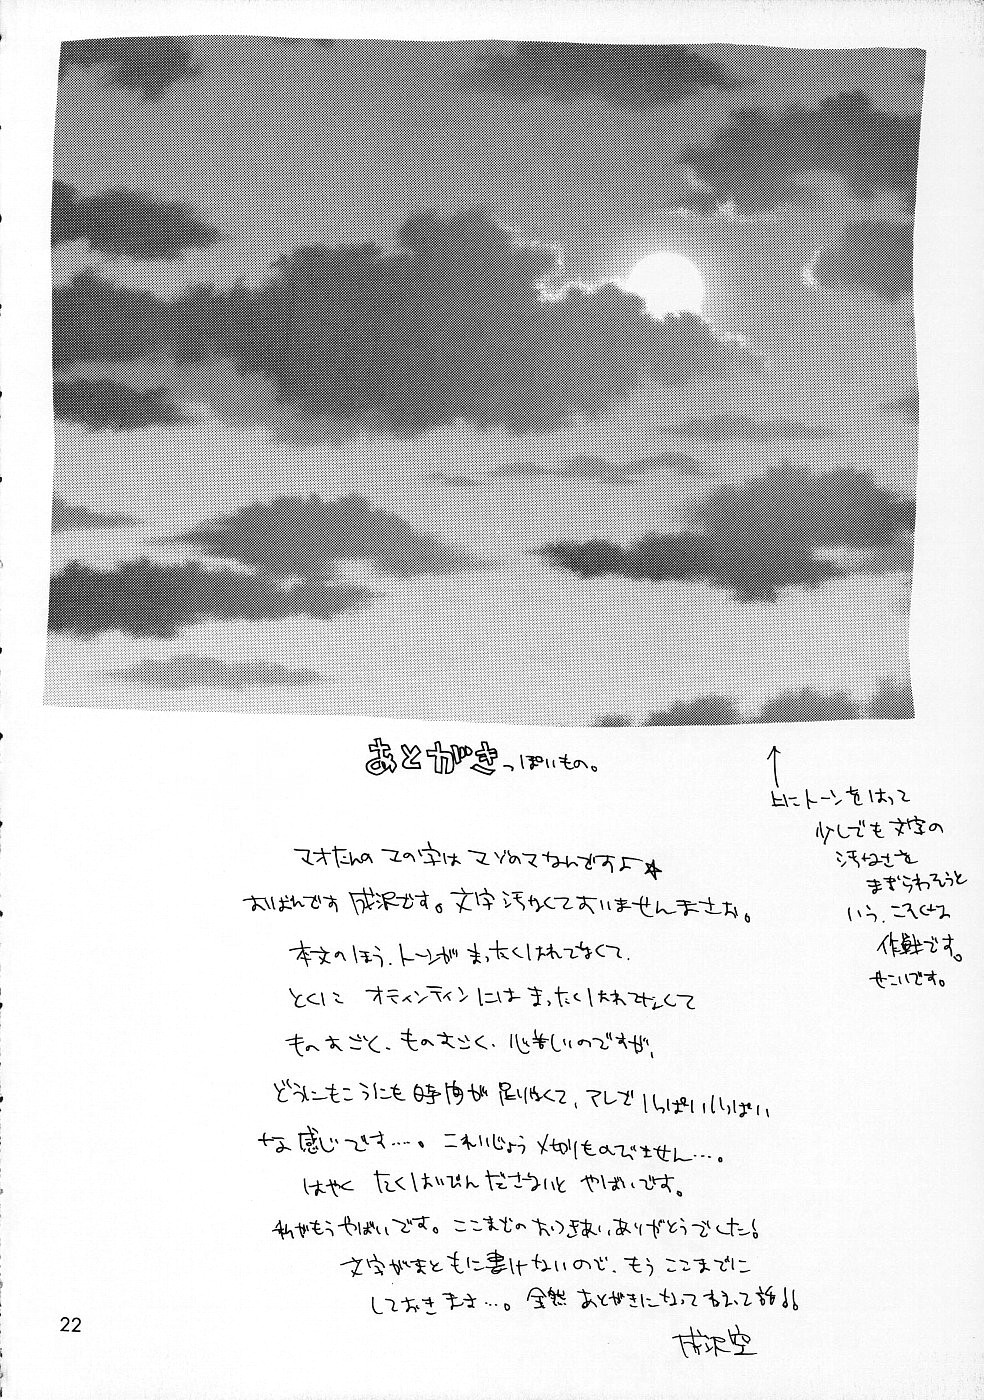 あとがきっぽいもの。
マオたんのマの字はマゾのマなんですよ☆
おばんです成沢です。文字汚なくてすいませんまさお。
本文のほう、トーンがまったくはれてなくて、
とくに オティンティンにはまったくはれてなくて
ものすごく、ものすごく、心苦しいのですが、
どうにもこうにも時間が足りなくて、アレでいっぱいいっぱい
な感じです…。これいじょう〆切りものびません…。
はやく たくはいびんださないと やばいです。
私がもうやばいです。ここまでのおつきあいありがとうでした!
文字がまともに書けないので、もうここまでに
しておきます…。全然あとがきになってねえって話!!
成沢空
↑
上にトーンをはって
少しでも文字の
汚なさを
まぎらわそうと
いう、こそくな
作戦です。
せこいです。
22